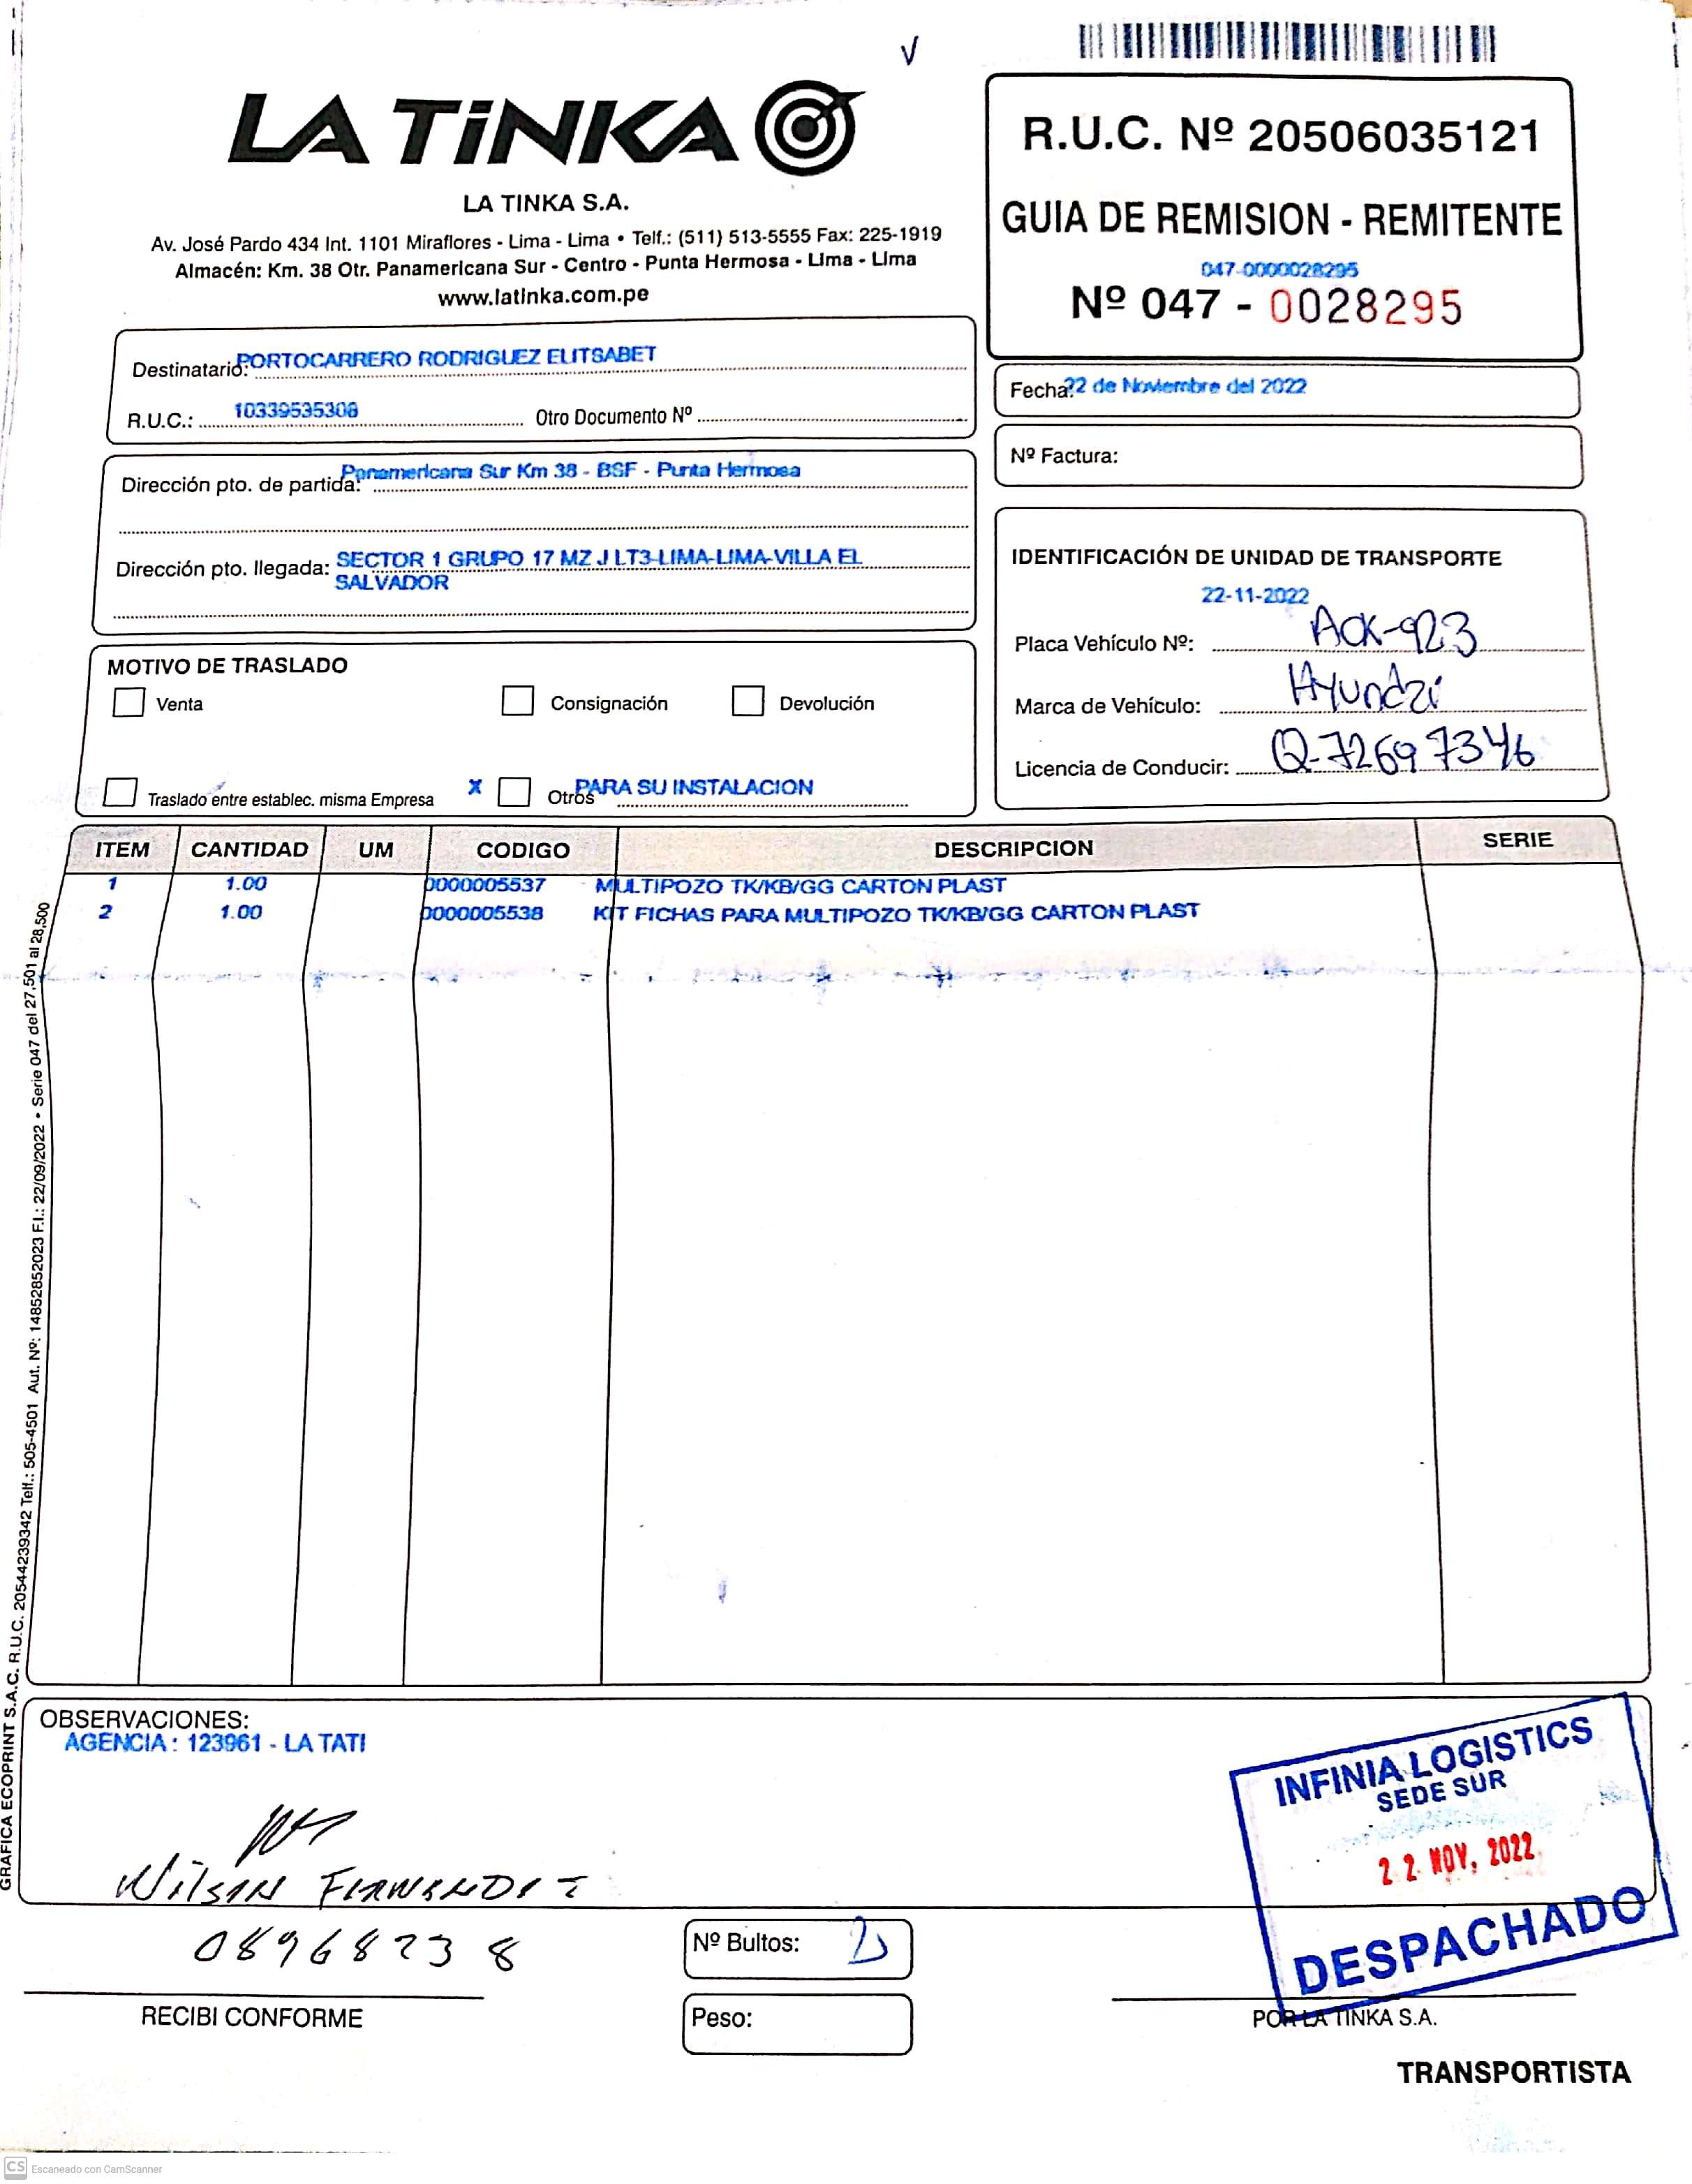 √
LA TiNKA
LA TINKA S.A.
Av. José Pardo 434 Int. 1101 Miraflores - Lima - Lima • Telf.: (511) 513-5555 Fax: 225-1919
Almacén: Km. 38 Otr. Panamericana Sur - Centro - Punta Hermosa - Lima - Lima
www.latinka.com.pe
R.U.C. Nº 20506035121
GUIA DE REMISION - REMITENTE
047-0000028295
Nº 047 - 0028295
Destinatario: PORTOCARRERO RODRIGUEZ ELITSABET
R.U.C.: 10339535308 Otro Documento Nº
Fecha: 22 de Noviembre del 2022
Nº Factura:
Dirección pto. de partida: Panamericana Sur Km 38 - BSF - Punta Hermosa
Dirección pto. llegada: SECTOR 1 GRUPO 17 MZ J LT3-LIMA-LIMA-VILLA EL
SALVADOR
IDENTIFICACIÓN DE UNIDAD DE TRANSPORTE
22-11-2022
Placa Vehículo Nº: ACK-923
Marca de Vehículo: Hyundai
Licencia de Conducir: Q-72697346
MOTIVO DE TRASLADO
Venta Consignación Devolución
Traslado entre establec. misma Empresa X Otros PARA SU INSTALACION
ITEM CANTIDAD UM CODIGO DESCRIPCION SERIE
1 1.00 0000005537 MULTIPOZO TK/KB/GG CARTON PLAST
2 1.00 0000005538 KIT FICHAS PARA MULTIPOZO TK/KB/GG CARTON PLAST
GRAFICA ECOPRINT S.A.C. R.U.C. 20544239342 Telf.: 505-4501 Aut. Nº: 14852852023 F.I.: 22/09/2022 • Serie 047 del 27,501 al 28,500
OBSERVACIONES:
AGENCIA : 123961 - LA TATI
Wilson
08968238
RECIBI CONFORME
Nº Bultos: 2
Peso:
INFINIA LOGISTICS
SEDE SUR
22 NOV. 2022
DESPACHADO
POR LA TINKA S.A.
TRANSPORTISTA
CS Escaneado con CamScanner